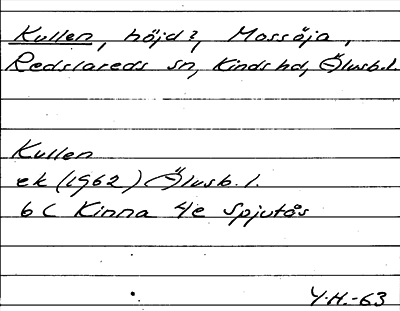 Kullen, höjd?, Mossöja,
Redslareds sn, Kinds hd, Älvsb.l.
Kullen
ek (1962) Älvsb.l.
6C Kinna 4e Spjutås
Y.H.-63